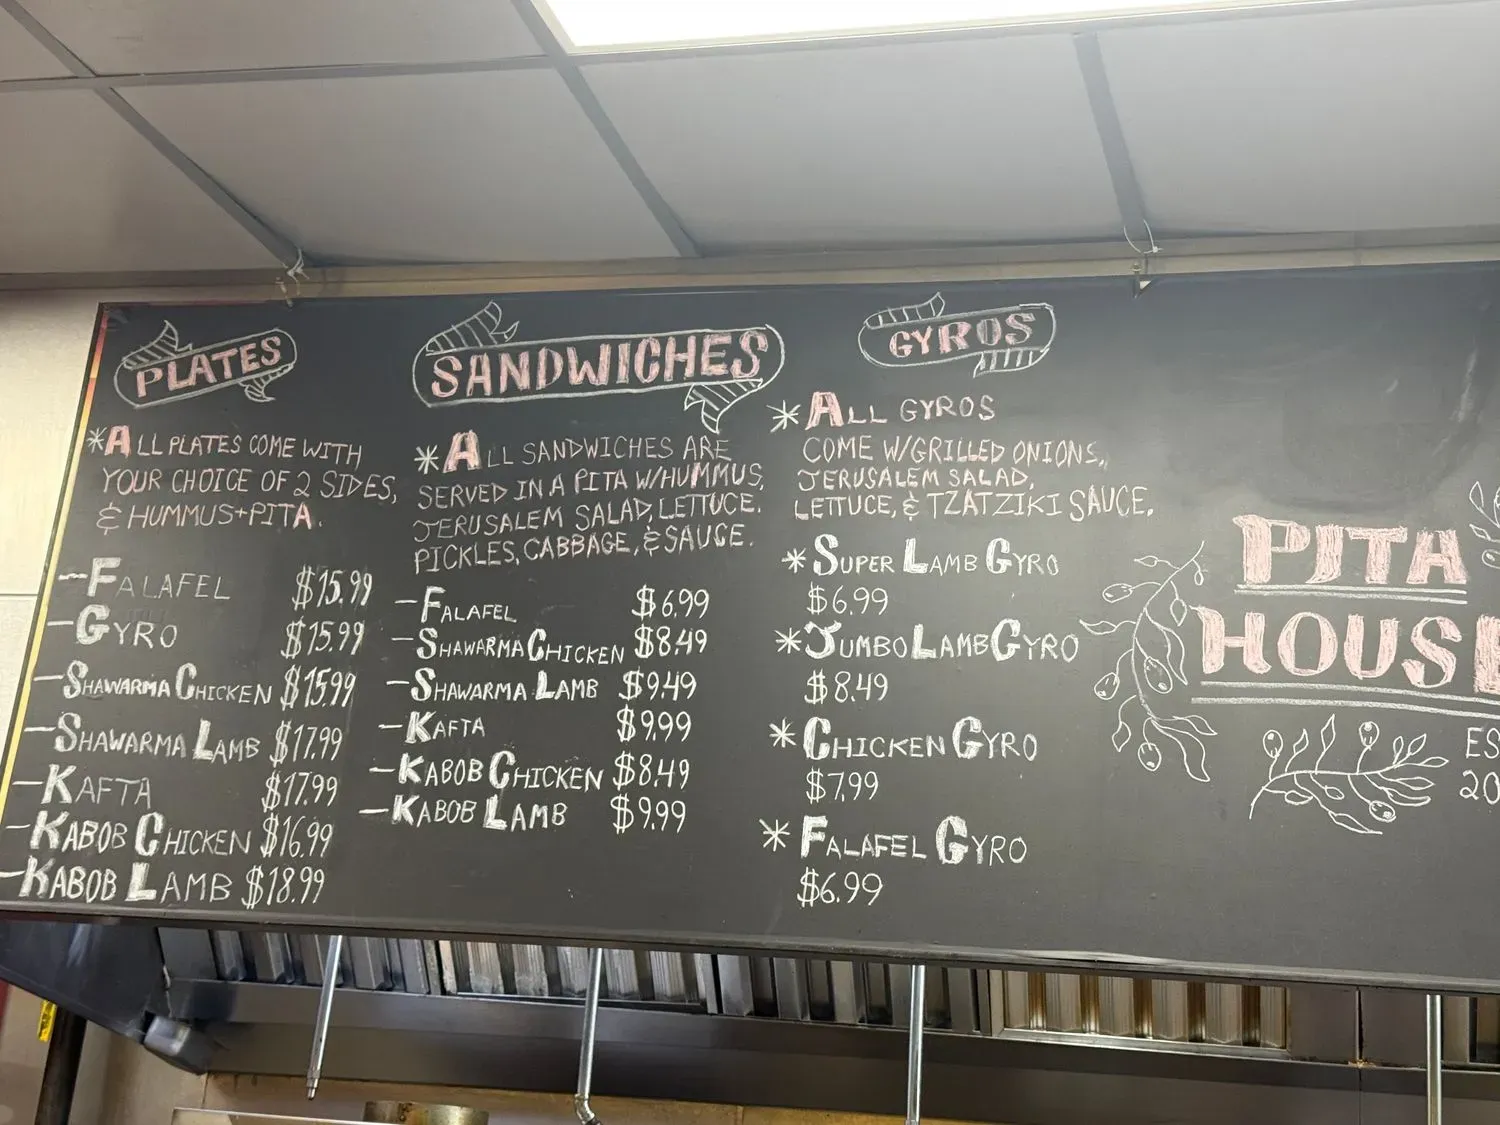 PLATES
*ALL PLATES COME WITH
YOUR CHOICE OF 2 SIDES,
& HUMMUS+PITA.
-FALAFEL $15.99
-GYRO $15.99
-SHAWARMA CHICKEN $15.99
-SHAWARMA LAMB $17.99
-KAFTA $17.99
-KABOB CHICKEN $16.99
-KABOB LAMB $18.99
SANDWICHES
*ALL SANDWICHES ARE
SERVED IN A PITA W/HUMMUS,
JERUSALEM SALAD, LETTUCE.
PICKLES, CABBAGE, & SAUCE.
-FALAFEL $6.99
-SHAWARMA CHICKEN $8.49
-SHAWARMA LAMB $9.49
-KAFTA $9.99
-KABOB CHICKEN $8.49
-KABOB LAMB $9.99
GYROS
*ALL GYROS
COME W/GRILLED ONIONS,
JERUSALEM SALAD,
LETTUCE, & TZATZIKI SAUCE.
*SUPER LAMB GYRO
$6.99
*JUMBO LAMB GYRO
$8.49
*CHICKEN GYRO
$7.99
*FALAFEL GYRO
$6.99
PITA
HOUSE
ES
20